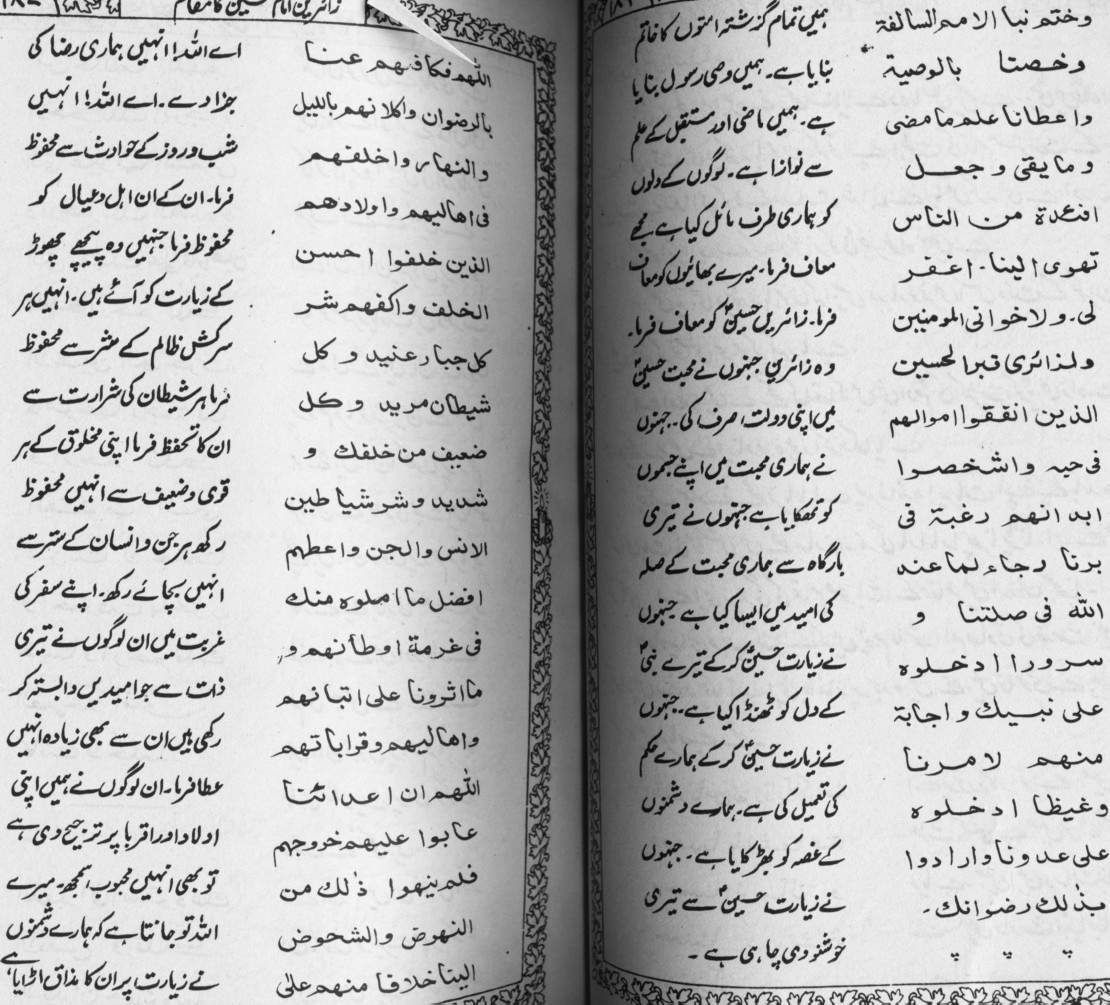 وختم نبا الامم السالفة
وخصتا بالوصية
واعطانا علم ما مضی
وما یقی و جعل
افئدة من الناس
تهوی الینا۔ اغفر
لی۔ ولاخوانی المومنین
ولذائری قبرالحسین
الذین انفقوا اموالهم
فی حبه واشخصوا
ابدانهم رغبة فی
برنا رجاء لما عند
الله فی صلتنا و
سرورا ادخلوه
علی نبیك و اجابة
منهم لامرنا
وغیظا ادخلوه
علی عدونا وارادوا
بذلك رضوانك۔
ہمیں تمام گزشتہ امتوں کا خاتم
بنایا ہے۔ ہمیں وصی رسول بنایا
ہے۔ ہمیں ماضی اور مستقبل کے علم
سے نوازا ہے۔ لوگوں کے دلوں
کو ہماری طرف مائل کیا ہے مجھے
معاف فرما۔ میرے بھائیوں کو معاف
فرما۔ زائرین حسینؑ کو معاف فرما۔
وہ زائرین جنہوں نے محبت حسینؑ
میں اپنی دولت صرف کی۔ جنہوں
نے ہماری محبت میں اپنے جسموں
کو تھکایا ہے جنہوں نے تیری
بارگاہ سے ہماری محبت کے صلہ
کی امید میں ایسا کیا ہے جنہوں
نے زیارت حسینؑ کرکے تیرے نبیؐ
کے دل کو ٹھنڈا کیا ہے۔ جنہوں
نے زیارت حسینؑ کر کے ہمارے حکم
کی تعمیل کی ہے۔ ہمارے دشمنوں
کے غصہ کو بھڑکایا ہے۔ جنہوں
نے زیارت حسینؑ سے تیری
خوشنودی چاہی ہے۔
زائرین امام حسین کا مقام
اللّهم فکافهم عنا
بالرضوان واکلانهم باللیل
والنهار واخلفهم
فی اهالیهم واولادهم
الذین خلفوا احسن
الخلف واکفهم شر
کل جبار عنید و کل
شیطان مرید و کل
ضعیف من خلفك و
شدید و شر شیاطین
الانس والجن واعطهم
افضل ما املوه منك
فی غرمة اوطانهم و
ما اثرونا علی ابنائهم
واهالیهم وقراباتهم
اللّهم ان اعدائنا
عابوا علیهم خروجهم
فلم ینهوا ذلك من
النهوض والشحوض
الینا خلافا منهم علی
اے اللہ! انہیں ہماری رضا کی
جزا دے۔ اے اللہ! انہیں
شب و روز کے حوادث سے محفوظ
فرما۔ ان کے ان اہل و عیال کو
محفوظ فرما جنہیں وہ پیچھے چھوڑ
کے زیارت کو آئے ہیں۔ انہیں ہر
سرکش ظالم کے شر سے محفوظ
فرما ہر شیطان کی شرارت سے
ان کا تحفظ فرما اپنی مخلوق کے ہر
قوی و ضعیف سے انہیں محفوظ
رکھ ہر جن و انسان کے شر سے
انہیں بچائے رکھ۔ اپنے سفر کی
غربت میں ان لوگوں نے تیری
ذات سے جو امیدیں وابستہ کر
رکھی ہیں ان سے بھی زیادہ انہیں
عطا فرما۔ ان لوگوں نے ہمیں اپنی
اولاد اور اقربا پر ترجیح دی ہے
تو بھی انہیں محبوب سمجھ۔ میرے
اللہ تو جانتا ہے کہ ہمارے دشمنوں
نے زیارت پر ان کا مذاق اڑایا ہے